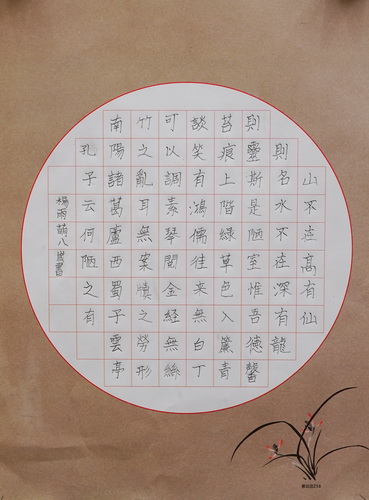 山不在高有仙
則名水不在深有龍
則靈斯是陋室惟吾德馨
苔痕上階綠草色入簾青
談笑有鴻儒往來無白丁
可以調素琴閱金經無絲
竹之亂耳無案牘之勞形
南陽諸葛廬西蜀子雲亭
孔子云何陋之有
楊雨萌八歲書